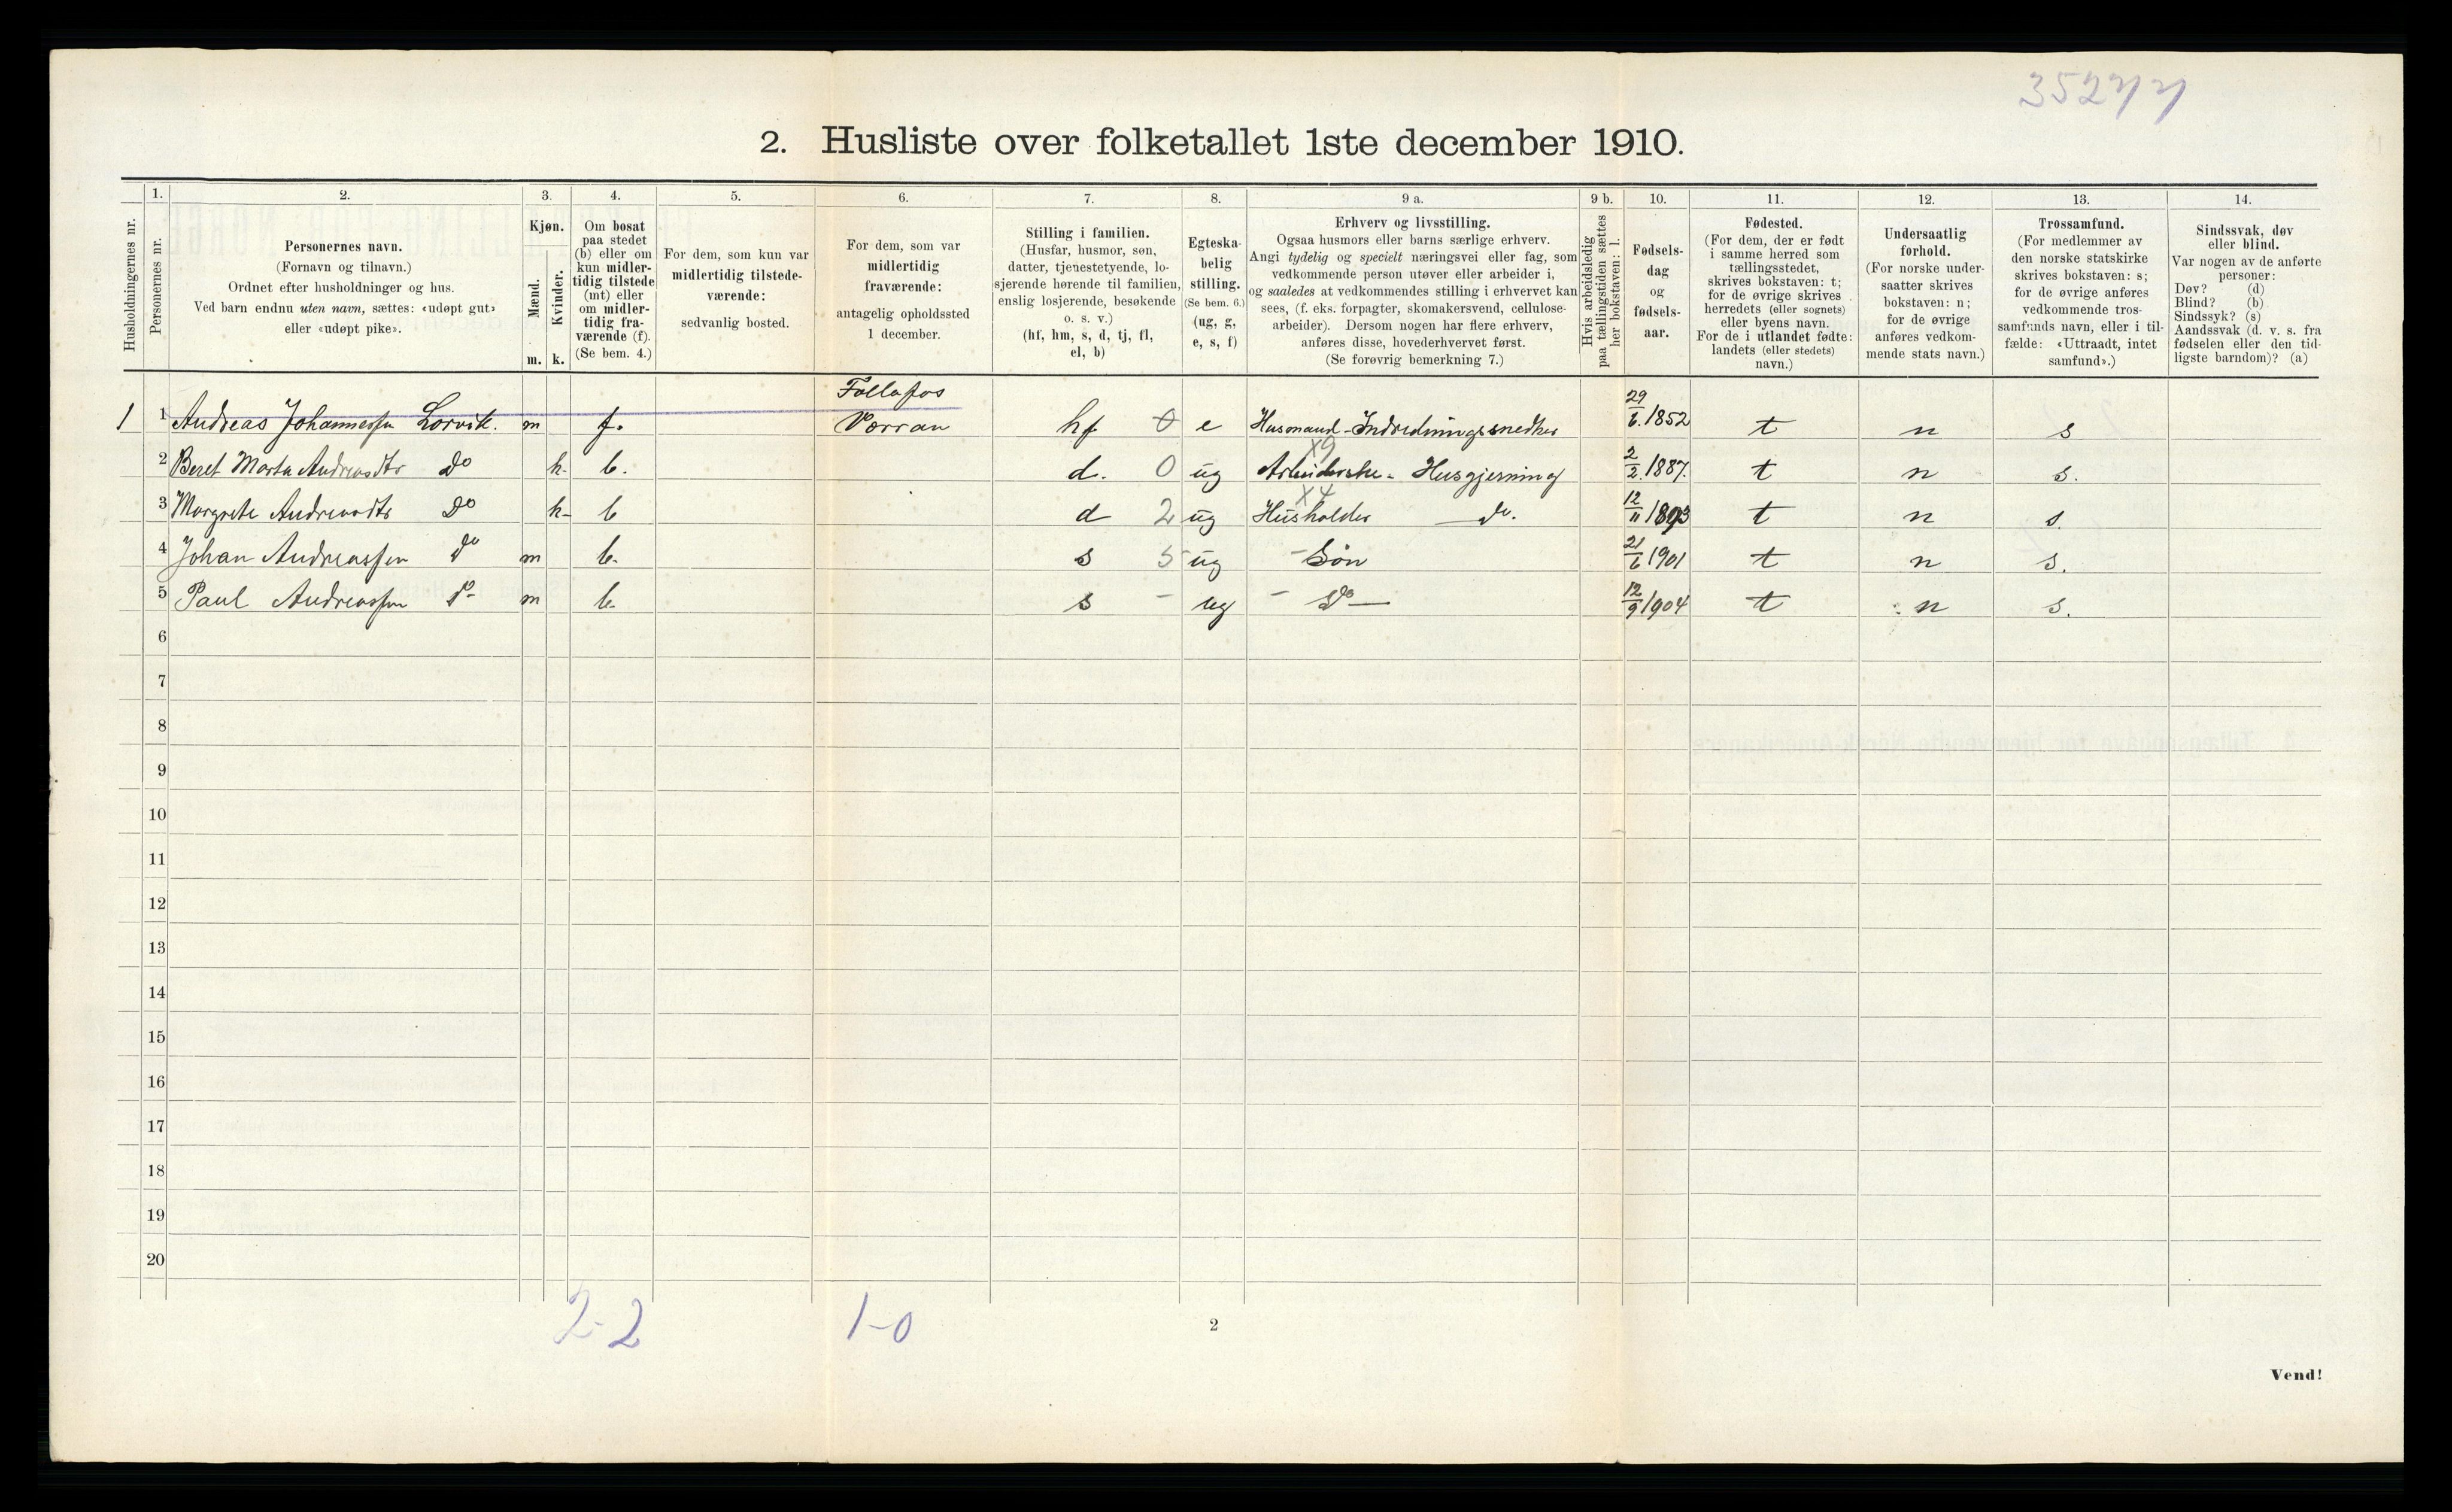 35277
2. Husliste over folketallet 1ste december 1910.
Husholdningernes nr.
1.
Personernes nr.
2.
Personernes navn.
(Fornavn og tilnavn.)
Ordnet efter husholdninger og hus.
Ved barn endnu uten navn, sættes: «udøpt gut»
eller «udøpt pike».
3.
Kjøn.
Mænd.
Kvinder.
m. k.
4.
Om bosat
paa stedet
(b) eller om
kun midler-
tidig tilstede
(mt) eller
om midler-
tidig fra-
værende (f).
(Se bem. 4.)
5.
For dem, som kun var
midlertidig tilstede-
værende:
sedvanlig bosted.
6.
For dem, som var
midlertidig
fraværende:
antagelig opholdssted
1 december.
7.
Stilling i familien.
(Husfar, husmor, søn,
datter, tjenestetyende, lo-
sjerende hørende til familien,
enslig losjerende, besøkende
o. s. v.)
(hf, hm, s, d, tj, fl,
el, b)
8.
Egteska-
belig
stilling.
(Se bem. 6.)
(ug, g,
e, s, f)
9 a.
Erhverv og livsstilling.
Ogsaa husmors eller barns særlige erhverv.
Angi tydelig og specielt næringsvei eller fag, som
vedkommende person utøver eller arbeider i,
og saaledes at vedkommendes stilling i erhvervet kan
sees, (f. eks. forpagter, skomakersvend, cellulose-
arbeider). Dersom nogen har flere erhverv,
anføres disse, hovederhvervet først.
(Se forøvrig bemerkning 7.)
9 b.
Hvis arbeidsledig
paa tællingstiden sættes
her bokstaven: l.
10.
Fødsels-
dag
og
fødsels-
aar.
11.
Fødested.
(For dem, der er født
i samme herred som
tællingsstedet,
skrives bokstaven: t;
for de øvrige skrives
herredets (eller sognets)
eller byens navn.
For de i utlandet fødte:
landets (eller stedets)
navn.)
12.
Undersaatlig
forhold.
(For norske under-
saatter skrives
bokstaven: n;
for de øvrige
anføres vedkom-
mende stats navn.)
13.
Trossamfund.
(For medlemmer av
den norske statskirke
skrives bokstaven: s;
for de øvrige anføres
vedkommende tros-
samfunds navn, eller i til-
fælde: «Uttraadt, intet
samfund».)
14.
Sindssvak, døv
eller blind.
Var nogen av de anførte
personer:
Døv? (d)
Blind? (b)
Sindssyk? (s)
Aandssvak (d. v. s. fra
fødselen eller den tid-
ligste barndom)? (a)
Follafos
1 1 Andreas Johannessen Lorvik. m f. Værran hf 0 e Husmand-Indredningssnedker 29/6. 1852 t n s
X9
2 Beret Marta Andreasdtr do k- b. d. 0 ug Arbeiderske - Husgjerning 2/2. 1887. t n s.
X4
3 Margrete Andreasdtr do k- b d 2 ug Husholder do. 12/11 1893 t n s.
4 Johan Andreassen do m b. s 5 ug - Søn 21/6 1901 t n s.
5 Paul Andreassen do- m b. s - ug - do - 12/9 1904 t n s.
6
7
8
9
10
11
12
13
14
15
16
17
18
19
20
2-2 1-0
2
Vend!